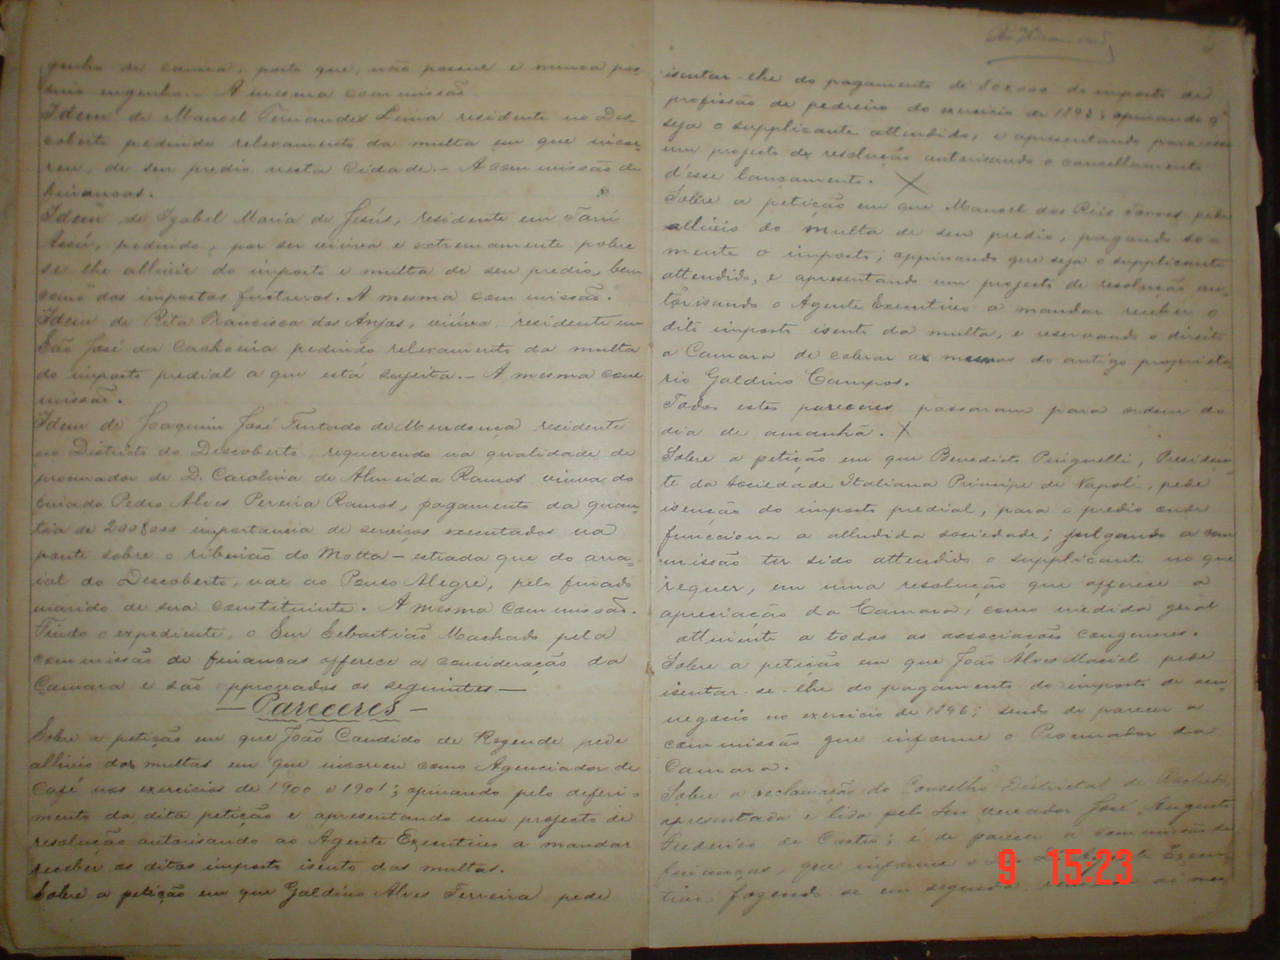 genho de canna, posto que, não possue e nunca pos-
suio engenho. - A mesma commissão
Idem de Manoel Fernandes Lima residente no Des-
coberto pedindo relevamento da multa em que incor-
reu, de seu predio nesta Cidade. - A commissão de
finanças.
Idem de Izabel Maria de Jesús, residente em Tarú
Assú, pedindo, por ser viúva e extremamente pobre
se lhe allivie do imposto e multa de seu predio, bem
como dos impostos fucturos. A mesma commissão.
Idem de Rita Francisca dos Anjos, viúva, residente em
São José da Cachoeira pedindo relevamento da multa
do imposto predial a que está sujeita. - A mesma com
missão.
Idem de Joaquim José Furtado de Mendonça residente
no Districto do Descoberto, requerendo na qualidade de
procurador de D. Carolina de Almeida Ramos viuva do
finado Pedro Alves Pereira Ramos, pagamento da quan-
tia de 200$000 importancia de serviços executados na
ponte sobre o ribeirão do Motta - estrada que do arra-
ial do Descoberto, vae ao Pouso Alegre, pelo finado
marido de sua constituinte. A mesma commissão.
Findo o expediente, o Snr Sebastião Machado pela
commissão de finanças offerece a consideração da
Camara e são approvados os seguintes -
- Pareceres -
Sobre a petição em que João Candido de Rezende pede
allivio das multas em que incorreu como Agenciador de
Café nos exercicios de 1900 e 1901; opinando pelo deferi-
mento da dita petição e apresentando um projecto de
resolução autorisando ao Agente Executivo a mandar
receber os ditos imposto isento das multas.
Sobre a petição em que Galdino Alves Ferreira pede
isentar-lhe do pagamento de do imposto de
profissão de pedreiro do exercicio de 1893; opinando q
seja o supplicante attendido, e apresentando para isso
um projecto de resolução autorisando o cancellamento
d'esse lançamento. X
Sobre a petição em que Manoel dos Reis Torres pede
allivio da multa de seu predio, pagando so-
mente o imposto; oppinando que seja o supplicante
attendido, e apresentando um projecto de resolução au-
torisando o Agente Executivo a mandar receber o
dito imposto isento da multa, e reservando o direito
a Camara de cobrar as mesmas do antigo proprieta
rio Galdino Campos.
Todos estes pareceres passaram para ordem do
dia de amanhã. X
Sobre a petição em que Benedicto, Presiden-
te da Sociedade Italiana Principe de Napoli, pede
isenção do imposto predial, para o predio onde
funcciona a alludida sociedade; julgando a com
missão ter sido attendido o supplicante no que
requer, em uma resolução que offerece a
apreciação da Camara, como medida geral
attinente a todas as associações congeneres.
Sobre a petição em que João Alves Maciel pede
isentar-se-lhe do pagamento do imposto de seu
negocio no exercicio de 1896; sendo de parecer a
commissão que informe o Procurador da
Camara.
Sobre a reclamação do Conselho Districtal de
apresentada e lida pelo Snr vereador José Augusto
Frederico de Castro; é de parecer a commissão de
finanças, que informe o Execu-
tivo, fazendo-se em seguida
9 15:23